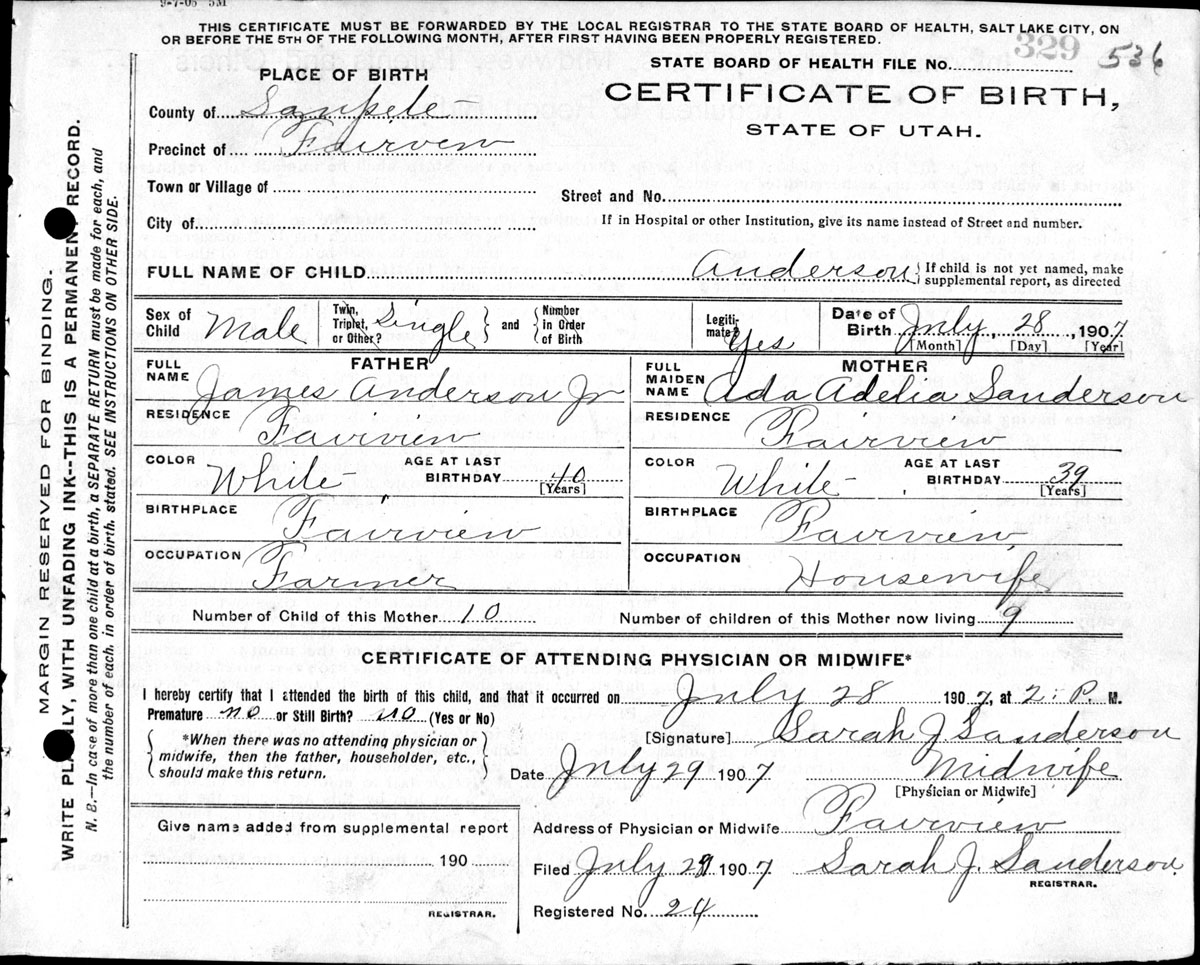 9-7-05 5M
THIS CERTIFICATE MUST BE FORWARDED BY THE LOCAL REGISTRAR TO THE STATE BOARD OF HEALTH, SALT LAKE CITY, ON
OR BEFORE THE 5TH OF THE FOLLOWING MONTH, AFTER FIRST HAVING BEEN PROPERLY REGISTERED.
STATE BOARD OF HEALTH FILE NO. 329 536
PLACE OF BIRTH
CERTIFICATE OF BIRTH,
STATE OF UTAH.
County of Sanpete
Precinct of Fairview
Town or Village of
Street and No.
City of
If in Hospital or other Institution, give its name instead of Street and number.
FULL NAME OF CHILD Anderson { If child is not yet named, make
supplemental report, as directed
Sex of Child Male
Twin, Triplet, or Other? Single } and { Number in Order of Birth
Legitimate? Yes
Date of Birth July 28, 1907
[Month] [Day] [Year]
FATHER
FULL NAME James Anderson Jr
RESIDENCE Fairview
COLOR White AGE AT LAST BIRTHDAY 40 [Years]
BIRTHPLACE Fairview
OCCUPATION Farmer
MOTHER
FULL MAIDEN NAME Ada Adelia Sanderson
RESIDENCE Fairview
COLOR White AGE AT LAST BIRTHDAY 39 [Years]
BIRTHPLACE Fairview
OCCUPATION Housewife
Number of Child of this Mother 10 Number of children of this Mother now living 9
CERTIFICATE OF ATTENDING PHYSICIAN OR MIDWIFE*
I hereby certify that I attended the birth of this child, and that it occurred on July 28 1907, at 2 P. M.
Premature no or Still Birth? no (Yes or No)
*When there was no attending physician or
midwife, then the father, householder, etc.,
should make this return.
[Signature] Sarah J Sanderson
Date July 29 1907 Midwife
[Physician or Midwife]
Give name added from supplemental report
190
REGISTRAR.
Address of Physician or Midwife Fairview
Filed July 29 1907 Sarah J. Sanderson
REGISTRAR.
Registered No. 24
MARGIN RESERVED FOR BINDING.
WRITE PLAINLY, WITH UNFADING INK--THIS IS A PERMANENT RECORD.
N. B.—In case of more than one child at a birth, a SEPARATE RETURN must be made for each, and
the number of each, in order of birth, stated. SEE INSTRUCTIONS ON OTHER SIDE.